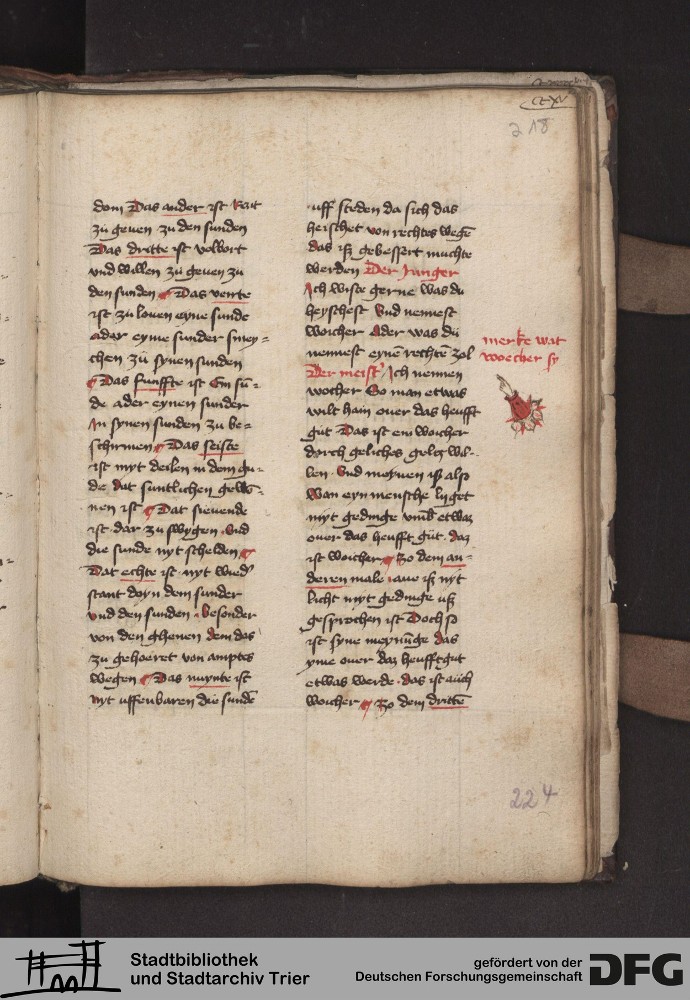 CCXV
218
dom Das ander ist Rait
zů geuen zů den sunden
Das dritte ist volbort
vnd willen zů geuen zů
den sunden Das veirte
ist zů louen eyne sunde
ader eyme sunder smey-
chen zů synen sunden
Das funffte ist Ein sů-
de ader eynen sunder
In synen sunden zů be-
schirmen Das seiste
ist myt deilen in dem gu-
de dat suntlichen gewō-
nen ist Dat sieuende
ist dar zů swygen Vnd
die sunde nyt schelden
Dat echte ist nyt wied'
stant doyn dem sunder
vnd den sunden besonder
von den ghenen dem das
zů gehoeret von amptes
wegen Das nuynte ist
Nyt uffenbaren die sundē
uff steden da sich das
heischet von rechtes wegē
das iß gebessert muchte
werden Der Junger
Ich wiste gerne was du
heyschest Vnd nennest
woicher Ader was dů
nennest eynē rechtē zol
Der meist' Ich nennen
wocher So man etwas
wilt hain ouer das heufft
gůt Das ist ein woicher
dorch geliches geltz wil-
len Vnd moynen iß also
Wan eyn mensche lyget
myt gedinge vmb etwaz
ouer das heufft gůt daz
ist woicher Zo dem an-
deren male aue iß nyt
licht myt gedinge uß
gesprochen ist Doch so
ist syne meynūge das
yme ouer daz heufftgut
etwas werde das ist aůch
woicher Zo dem drittē
merke wat
woecher sy
224
Stadtbibliothek
und Stadtarchiv Trier
gefördert von der
Deutschen Forschungsgemeinschaft
DFG